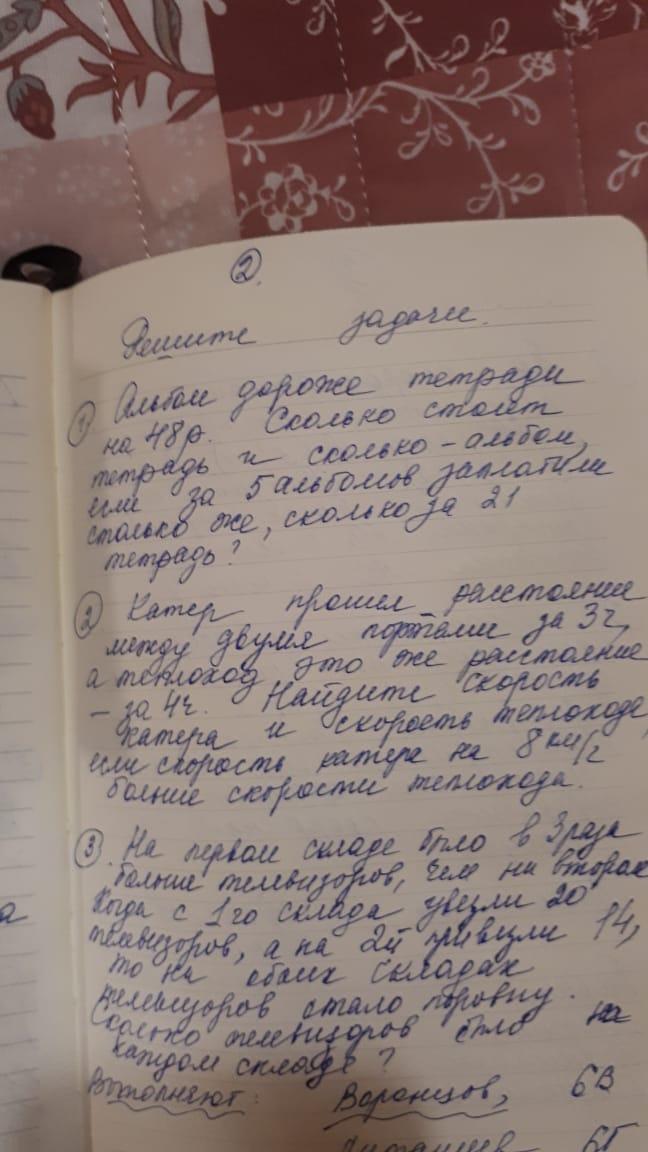 ②.
Решите задачи.
① Альбом дороже тетради
на 48р. Сколько стоит
тетрадь и сколько - альбом,
если за 5 альбомов заплатили
столько же, сколько за 21
тетрадь?
② Катер прошел расстояние
между двумя портами за 3ч,
а теплоход это же расстояние
- за 4ч. Найдите скорость
катера и скорость теплохода,
если скорость катера на 8 км/г
больше скорости теплохода.
③. На первом складе было в 3 раза
больше телевизоров, чем на втором
Когда с 1го склада увезли 20
телевизоров, а на 2й привезли 14,
то на обоих складах
телевизоров стало поровну.
Сколько телевизоров было на
каждом складе?
Выполняют: Воронцов, 6В
6Г
а